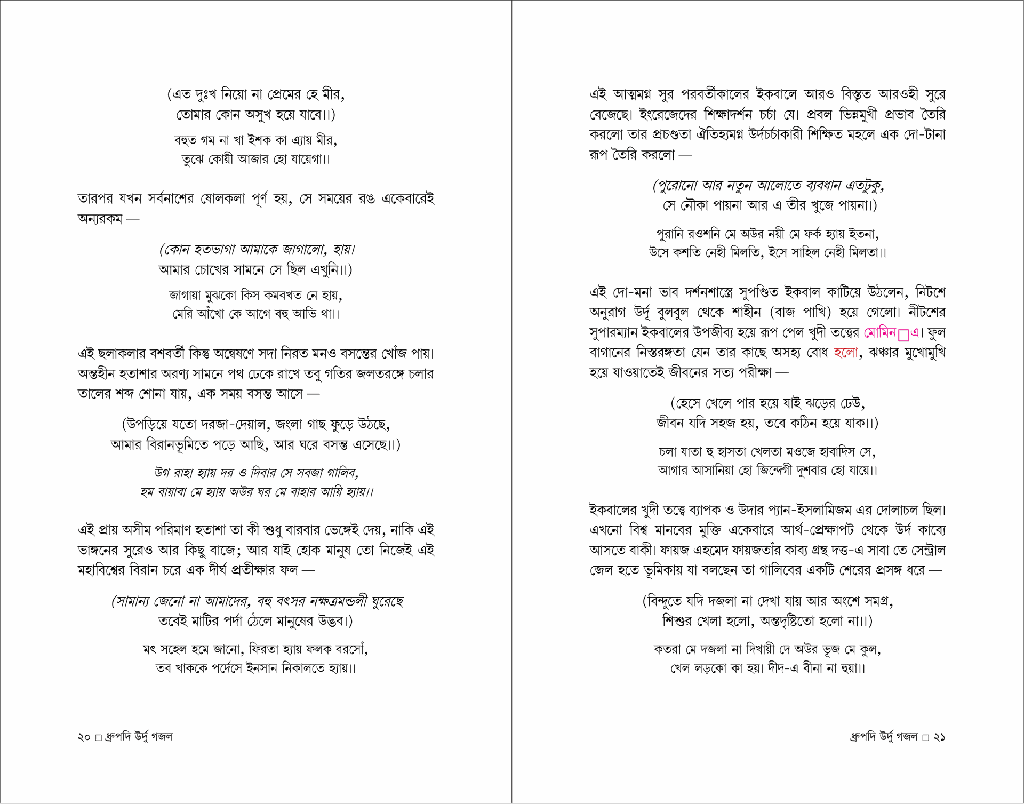 (এত দুঃখ নিয়ো না প্রেমের হে মীর,
তোমার কোন অসুখ হয়ে যাবে।।)
বহুত গম না খা ইশক কা এ্যায় মীর,
তুঝে কোয়ী আজার হো যায়েগা।।
তারপর যখন সর্বনাশের ষোলকলা পূর্ণ হয়, সে সময়ের রঙ একেবারেই
অন্যরকম —
(কোন হতভাগা আমাকে জাগালো, হায়।
আমার চোখের সামনে সে ছিল এখুনি।।)
জাগায়া মুঝকো কিস কমবখত নে হায়,
মেরি আঁখো কে আগে বহু আভি থা।।
এই ছলাকলার বশবর্তী কিন্তু অন্বেষণে সদা নিরত মনও বসন্তের খোঁজ পায়।
অন্তহীন হতাশার অরণ্য সামনে পথ ঢেকে রাখে তবু গতির জলতরঙ্গে চলার
তালের শব্দ শোনা যায়, এক সময় বসন্ত আসে —
(উপড়িয়ে যতো দরজা-দেয়াল, জংলা গাছ ফুড়ে উঠছে,
আমার বিরানভূমিতে পড়ে আছি, আর ঘরে বসন্ত এসেছে।।)
উগ রাহা হ্যায় দর ও দিবার সে সবজা গালিব,
হম বায়াবা মে হ্যায় অউর ঘর মে বাহার আয়ি হ্যায়।।
এই প্রায় অসীম পরিমাণ হতাশা তা কী শুধু বারবার ভেঙ্গেই দেয়, নাকি এই
ভাঙ্গনের সুরেও আর কিছু বাজে; আর যাই হোক মানুষ তো নিজেই এই
মহাবিশ্বের বিরান চরে এক দীর্ঘ প্রতীক্ষার ফল —
(সামান্য জেনো না আমাদের, বহু বৎসর নক্ষত্রমন্ডলী ঘুরেছে
তবেই মাটির পর্দা ঠেলে মানুষের উদ্ভব।)
মৎ সহেল হমে জানো, ফিরতা হ্যায় ফলক বরসোঁ,
তব খাককে পর্দেসে ইনসান নিকালতে হ্যায়।।
২০ □ ধ্রুপদি উর্দু গজল
এই আত্মমগ্ন সুর পরবর্তীকালের ইকবালে আরও বিস্তৃত আরওহী সুরে
বেজেছে। ইংরেজেদের শিক্ষাদর্শন চর্চা যে। প্রবল ভিন্নমুখী প্রভাব তৈরি
করলো তার প্রচণ্ডতা ঐতিহ্যমগ্ন উর্দচর্চাকারী শিক্ষিত মহলে এক দো-টানা
রূপ তৈরি করলো —
(পুরোনো আর নতুন আলোতে ব্যবধান এতটুকু,
সে নৌকা পায়না আর এ তীর খুজে পায়না।)
পুরানি রওশনি মে অউর নয়ী মে ফর্ক হ্যায় ইতনা,
উসে কশতি নেহী মিলতি, ইসে সাহিল নেহী মিলতা।।
এই দো-মনা ভাব দর্শনশাস্ত্রে সুপণ্ডিত ইকবাল কাটিয়ে উঠলেন, নিটশে
অনুরাগ উর্দূ বুলবুল থেকে শাহীন (বাজ পাখি) হয়ে গেলো। নীটশের
সুপারম্যান ইকবালের উপজীব্য হয়ে রূপ পেল খুদী তত্ত্বের মোমিন□এ। ফুল
বাগানের নিস্তরঙ্গতা যেন তার কাছে অসহ্য বোধ হলো, ঝঞ্চার মুখোমুখি
হয়ে যাওয়াতেই জীবনের সত্য পরীক্ষা —
(হেসে খেলে পার হয়ে যাই ঝড়ের ঢেউ,
জীবন যদি সহজ হয়, তবে কঠিন হয়ে যাক।।)
চলা যাতা হু হাসতা খেলতা মওজে হাবাদিস সে,
আগার আসানিয়া হো জিন্দেগী দুশবার হো যায়ে।।
ইকবালের খুদী তত্ত্বে ব্যাপক ও উদার প্যান-ইসলামিজম এর দোলাচল ছিল।
এখনো বিশ্ব মানবের মুক্তি একেবারে আর্থ-প্রেক্ষাপট থেকে উর্দ কাব্যে
আসতে বাকী। ফায়জ এহমেদ ফায়জতাঁর কাব্য গ্রন্থ দস্ত-এ সাবা তে সেন্ট্রাল
জেল হতে ভূমিকায় যা বলছেন তা গালিবের একটি শেরের প্রসঙ্গ ধরে —
(বিন্দুতে যদি দজলা না দেখা যায় আর অংশে সমগ্র,
শিশুর খেলা হলো, অন্তদৃষ্টিতো হলো না।।)
কতরা মে দজলা না দিখায়ী দে অউর ভূজ মে কুল,
খেল লড়কো কা হয়। দীদ-এ বীনা না হুয়া।।
ধ্রুপদি উর্দু গজল □ ২১